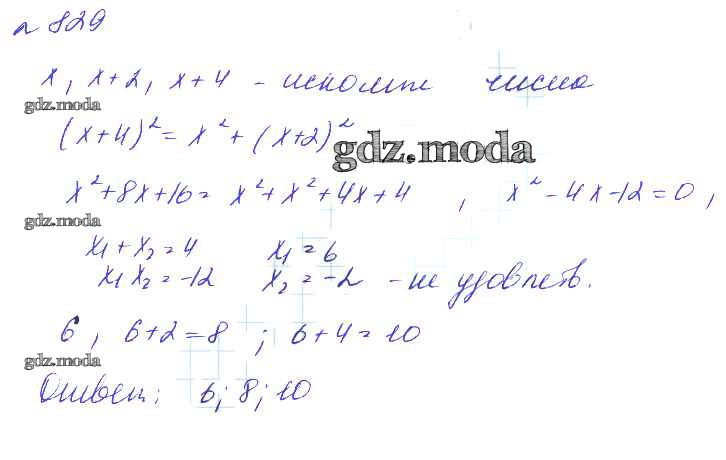 № 829
x, x+2, x+4 - искомые числа
gdz.moda
(x+4)² = x² + (x+2)²
gdz.moda
x²+8x+16 = x²+x²+4x+4 , x²-4x-12=0,
gdz.moda
x₁+x₂=4 x₁=6
x₁x₂=-12 x₂=-2 - не удовлетв.
6, 6+2=8 ; 6+4=10
gdz.moda
Ответ: 6; 8; 10